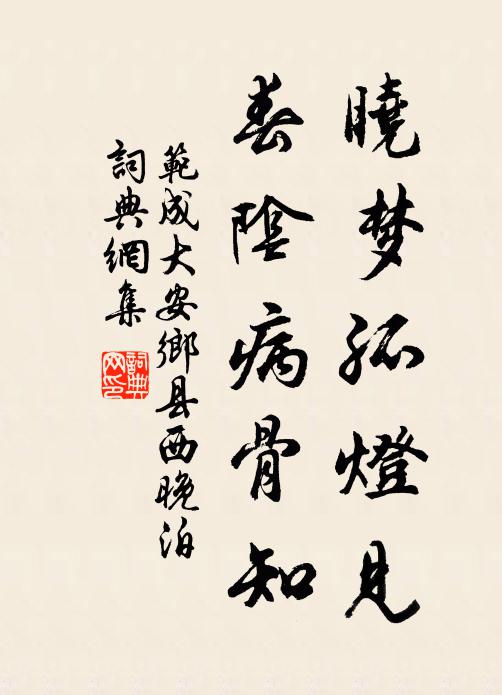 曉梦孤燈見
春陰病骨知
範成大安鄉县西晚泊
詞典網集
詞典网印